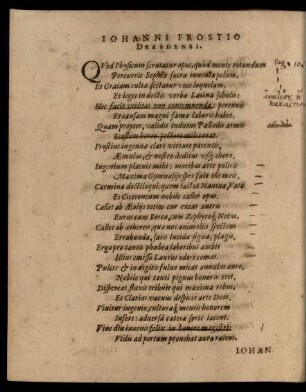 IOHANNI FROSTIO
DRESDENSI.
QVod Physicum scrutatur opus, quod mente rotundum
Percurrit Sophiæ sacra inventa polum,
Et Graiam culta sectatur voce loquelam,
Et legit in doctis verba Latina scholis:
Hoc facit utilitas non contemnenda: perennis
Et causam magni fama laboris habet.
Quam propter, validis indutus Palladis armis
Frostius ingenua clari virtute parentis,
Æmulus, & nostro deditus usq; choro,
Ingentium plausus miht: moribus arte politis
Maxima Gymnasii spes fuit ille mei,
Carmina docti loqui: quem iactat Mantua, Vatis
Et Ciceronium nobile callet opus.
Callet ab Æoliis totius cur exeat antru
Eurus cum Borea, cum Zephyroq; Notus,
Callet ab æthereis, quæ nec animalia spectent
Errabunda, satis lucida signa, plagis,
Ergo pro tantis phœbea laboribus ambit
Illius emissò Laurius odore comas.
Pulcer & in digitis fulvo micat annulus auro,
Nobile qui tanti pignus honoris erit,
Et Clarius vacuus despicit arte Deus,
Vivitur ingenio, culturaq́; mentis honorem
Infert: adversâ cætera sorte iacent.
Vive diu iuvenis felix in honore magistri:
Vtilis ad portum provehat aura ratem.
IOHAN.